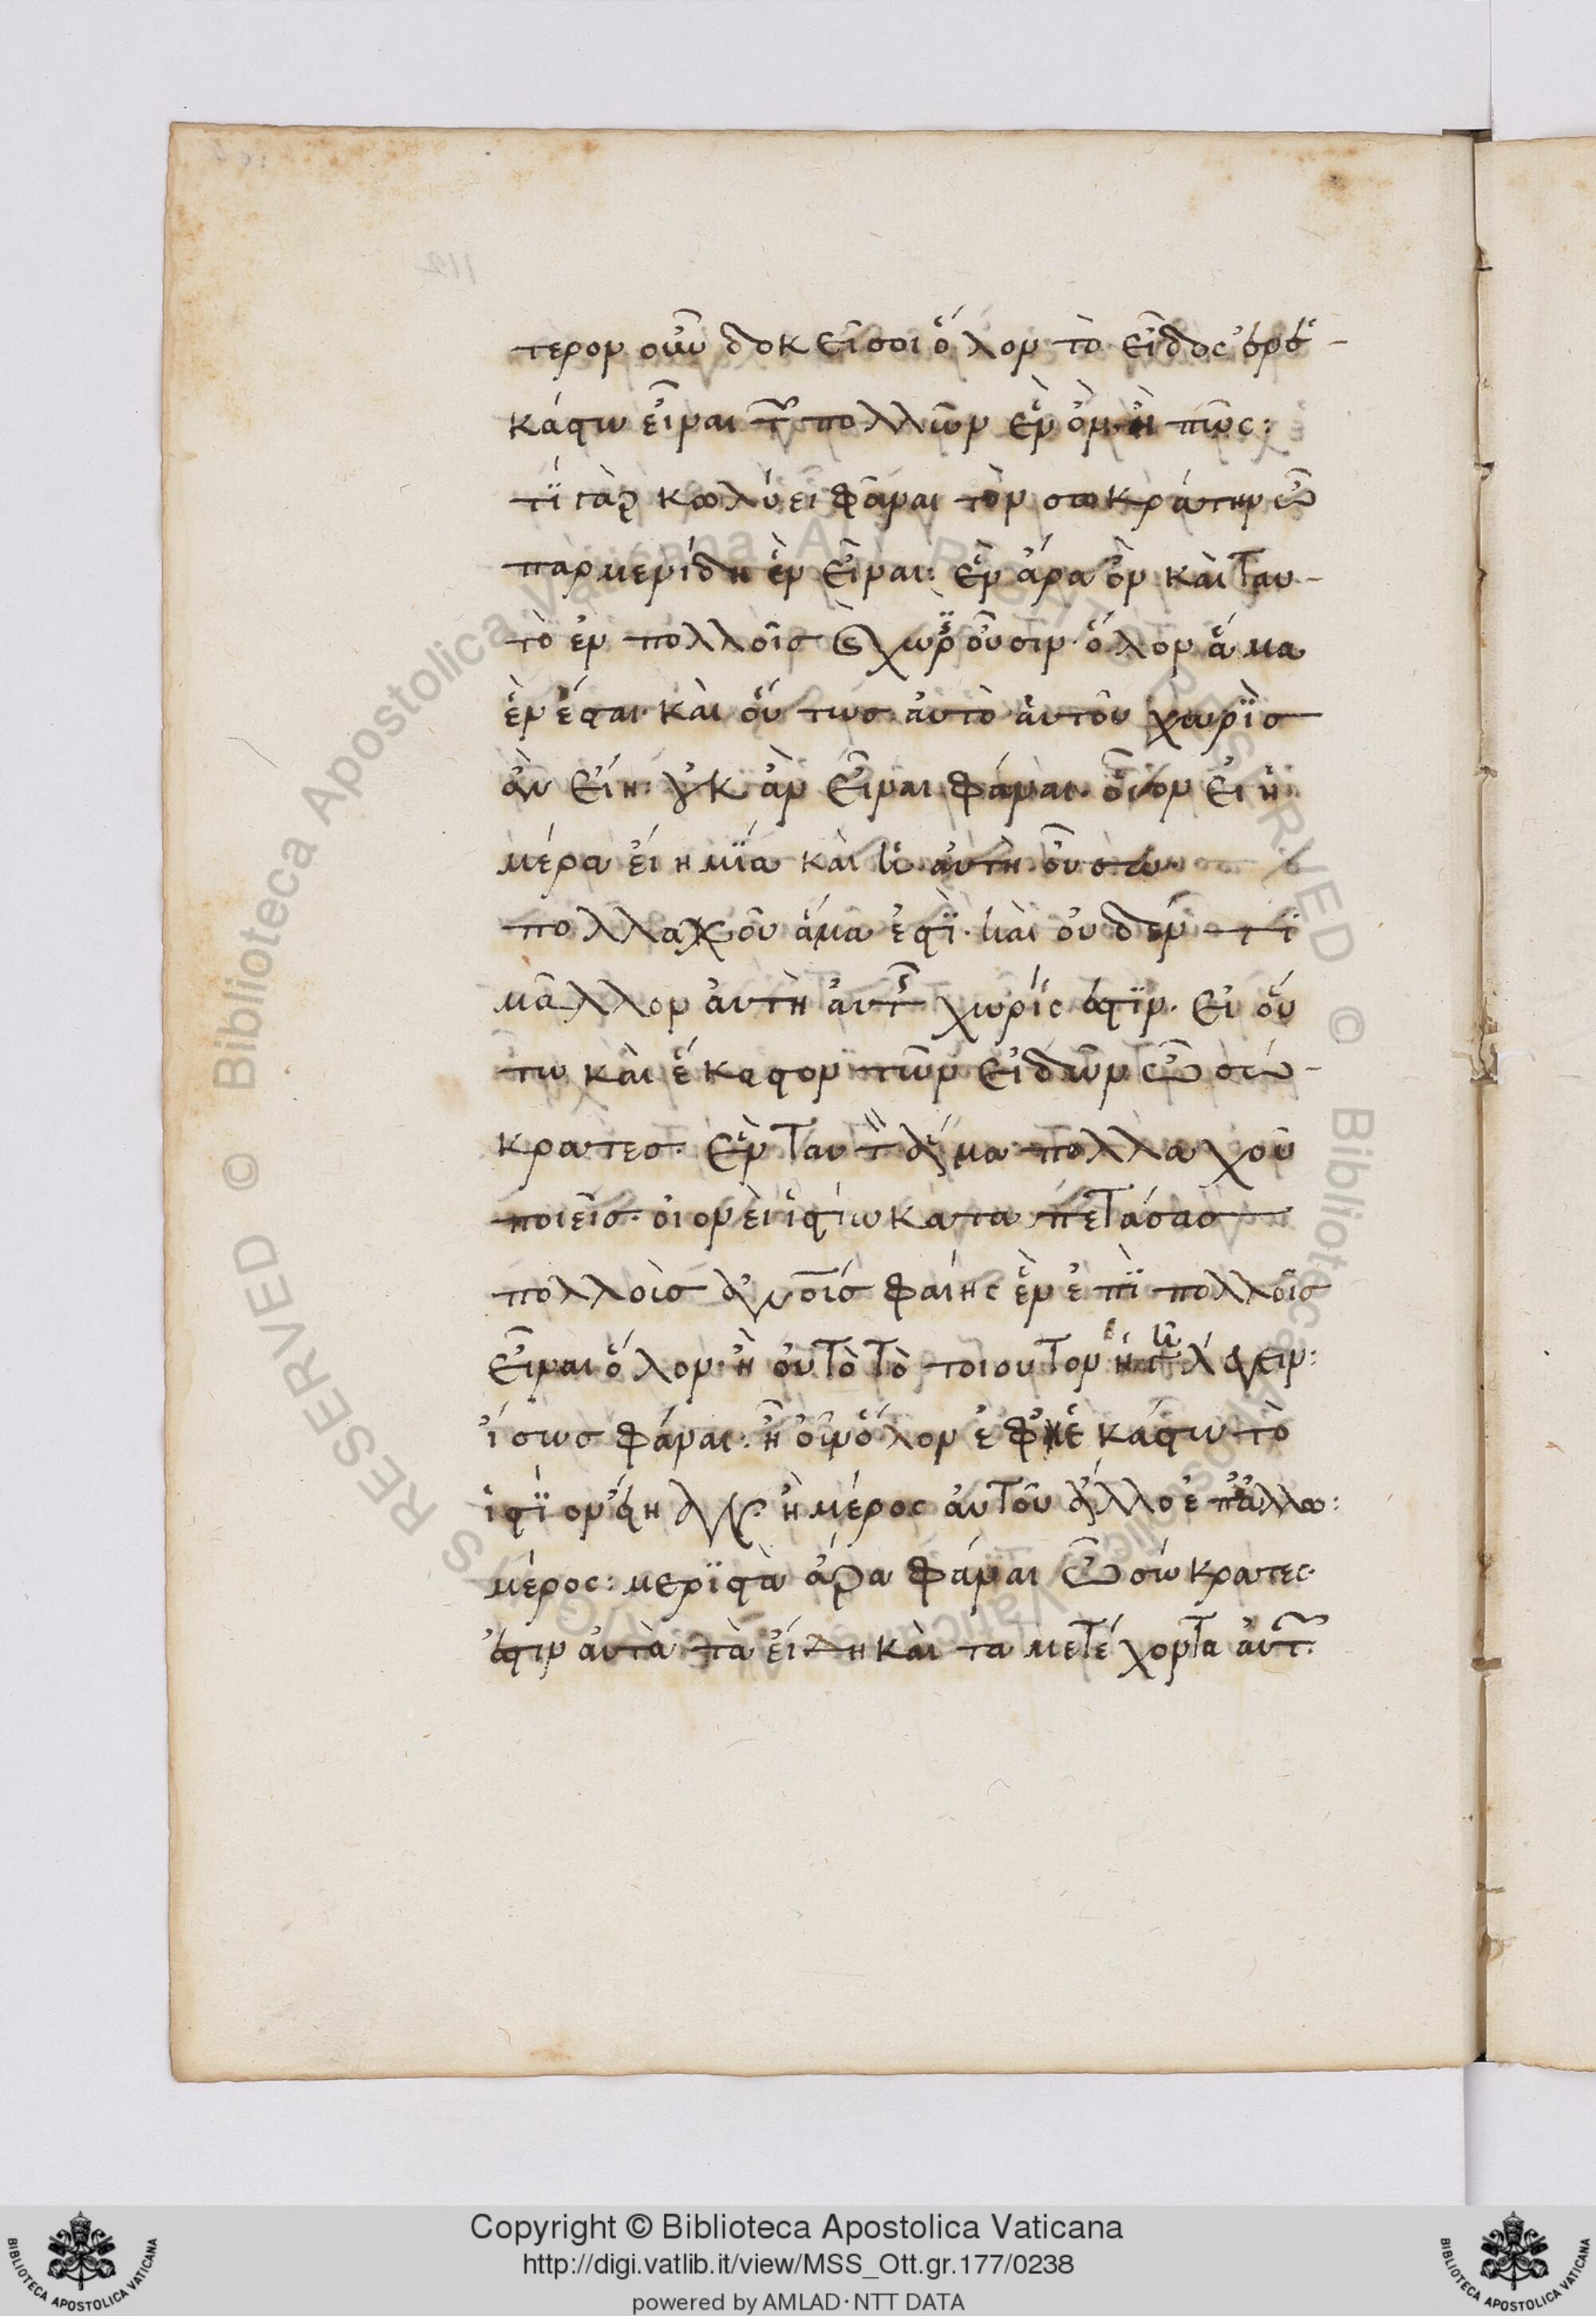 τερον οὖν δοκεῖ σοι ὅλον τὸ εἶδος ἐν ἑ-
κάστω εἶναι τῶν πολλῶν ἓν ὂν· ἢ πῶς:
τί γὰρ κωλύει φάναι τὸν σωκράτην ὦ
παρμενίδη ἓν εἶναι: ἓν ἄρα ὂν καὶ ταυ-
τὸ ἐν πολλοῖς καὶ χωρὶς οὖσιν· ὅλον ἅμα
ἓν ἔσται· καὶ οὕτως αὐτὸ αὑτοῦ χωρὶς
ἂν εἴη· οὐκ ἂν εἶναι φάναι· οἷον εἰ ἡ
μέρα εἴη μία καὶ ἡ αὐτὴ οὖσα
πολλαχοῦ ἅμα ἐστὶ· καὶ οὐδέν τι
μᾶλλον αὐτὴ αὑτῆς χωρίς ἐστιν· εἰ οὕ
τω καὶ ἕκαστον τῶν εἰδῶν ὦ σώ-
κρατες· ἓν ταυτ ἅμα πολλαχοῦ
ποιεῖς· οἱον εἰ ἱστίω καταπετάσας
πολλοὺς ἀνους φαίης ἓν ἐπὶ πολλοῖς
εἶναι ὅλον· ἢ οὐ τὸ τὸ τοιουτον ἡγῆ λέγειν:
ἴσως φάναι· ἦ οὖν ὅλον ἐφ' ἑκάστω τὸ
ἱστίον εἴη ἂν· ἢ μέρος αὐτοῦ ἄλλο ἐπ' ἄλλω:
μέρος: μεριστὰ ἄρα φάναι ὦ σώκρατες·
ἔστιν αὐτὰ τὰ εἴδη καὶ τα μετέχοντα αὐτῶν
Copyright © Biblioteca Apostolica Vaticana
http://digi.vatlib.it/view/MSS_Ott.gr.177/0238
powered by AMLAD·NTT DATA